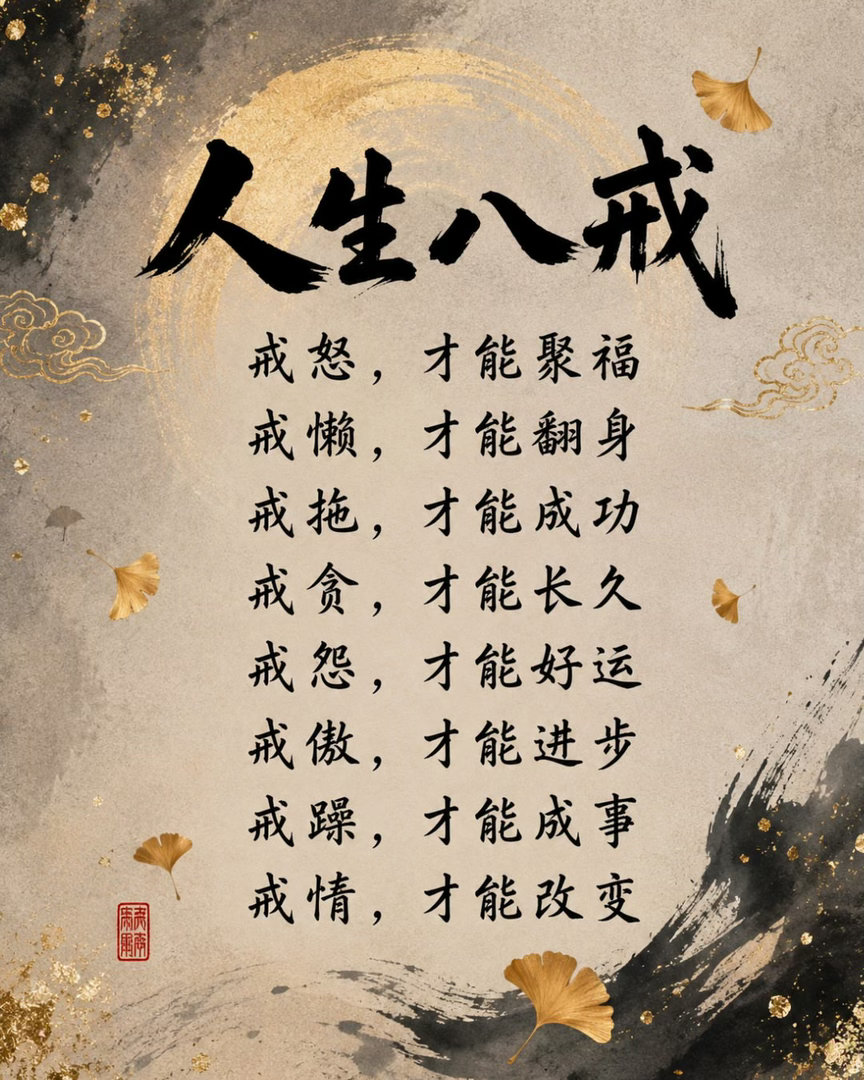 人生八戒
戒怒，才能聚福
戒懒，才能翻身
戒拖，才能成功
戒贪，才能长久
戒怨，才能好运
戒傲，才能进步
戒躁，才能成事
戒情，才能改变